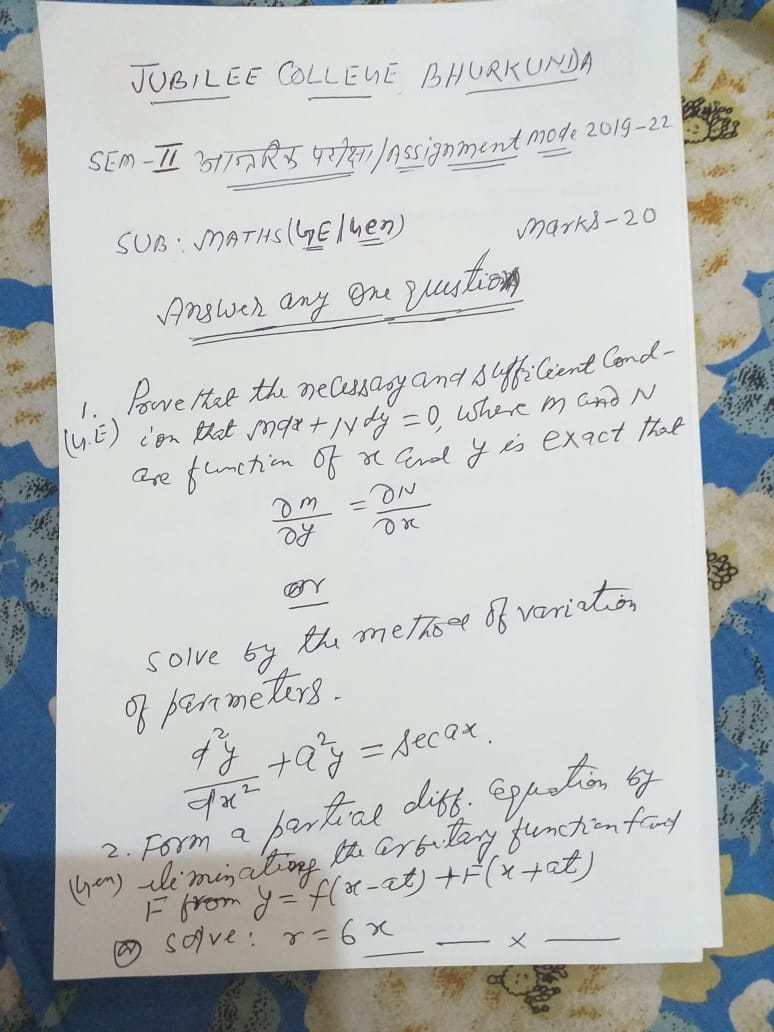 JUBILEE COLLEGE BHURKUNDA
SEM-II आन्तरिक परीक्षा/Assignment mode 2019-22
SUB: MATHS(GE/Gen) Marks-20
Answer any One question
1. Prove that the necessary and sufficient Cond-
(G.E) ion that mdx + Ndy = 0, where m and N
are function of x and y is exact that
∂m/∂y = ∂N/∂x
or
solve by the method of variation
of parameters.
d²y/dx² + a²y = sec ax.
2. Form a partial diff. equation by
(Gen) eliminating the arbitary function f and
F from y = f(x-at) + F(x+at)
or solve: r = 6x
— — x —